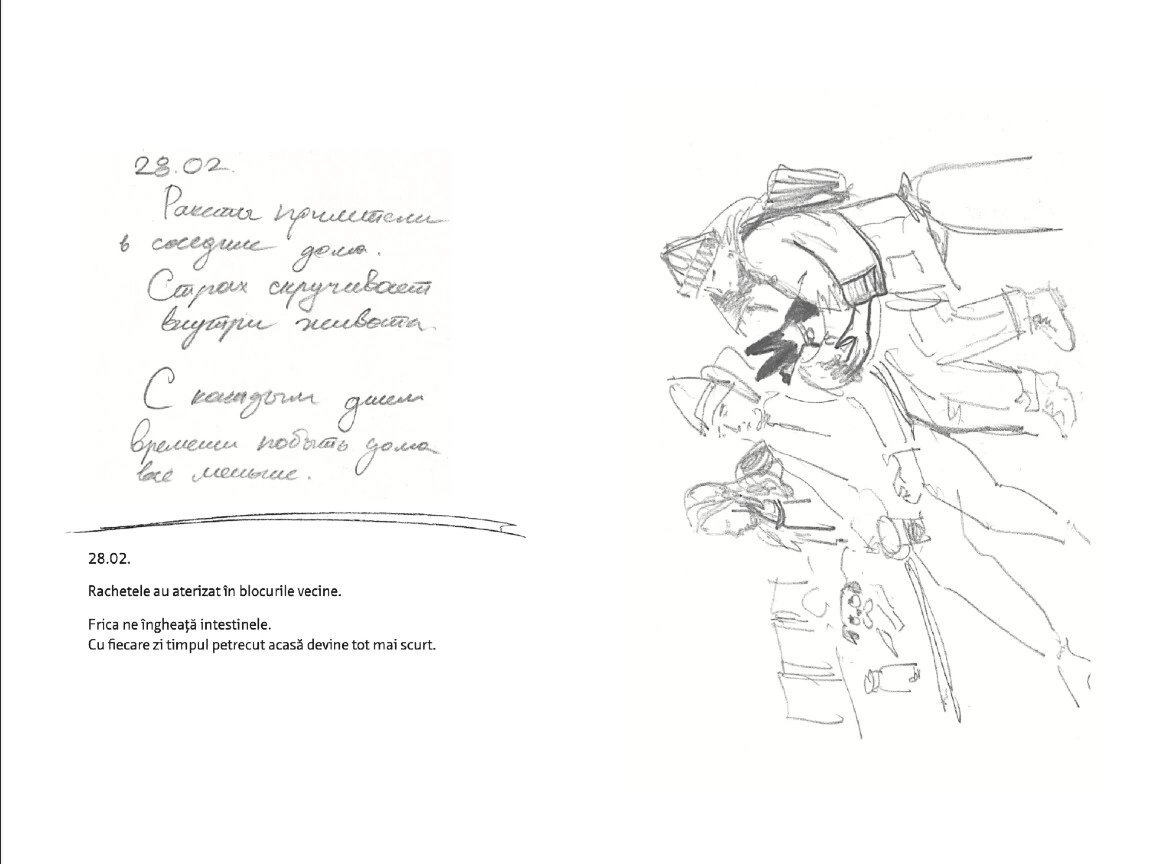 28.02.
Ракеты прилетели
в соседние дома.
Страх скручивает
внутри живота.
С каждым днем
времени побыть дома
все меньше.
28.02.
Rachetele au aterizat în blocurile vecine.
Frica ne îngheață intestinele.
Cu fiecare zi timpul petrecut acasă devine tot mai scurt.